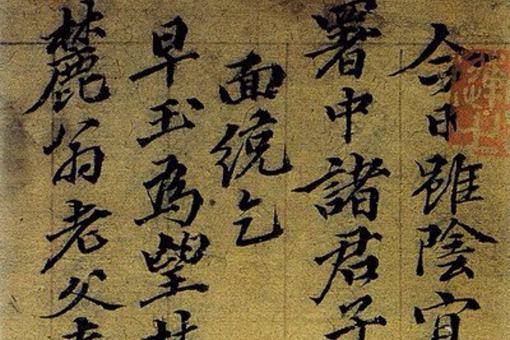 今日雖陰宜
署中諸君子
面繞乞
早玉為望其
麓翁老父